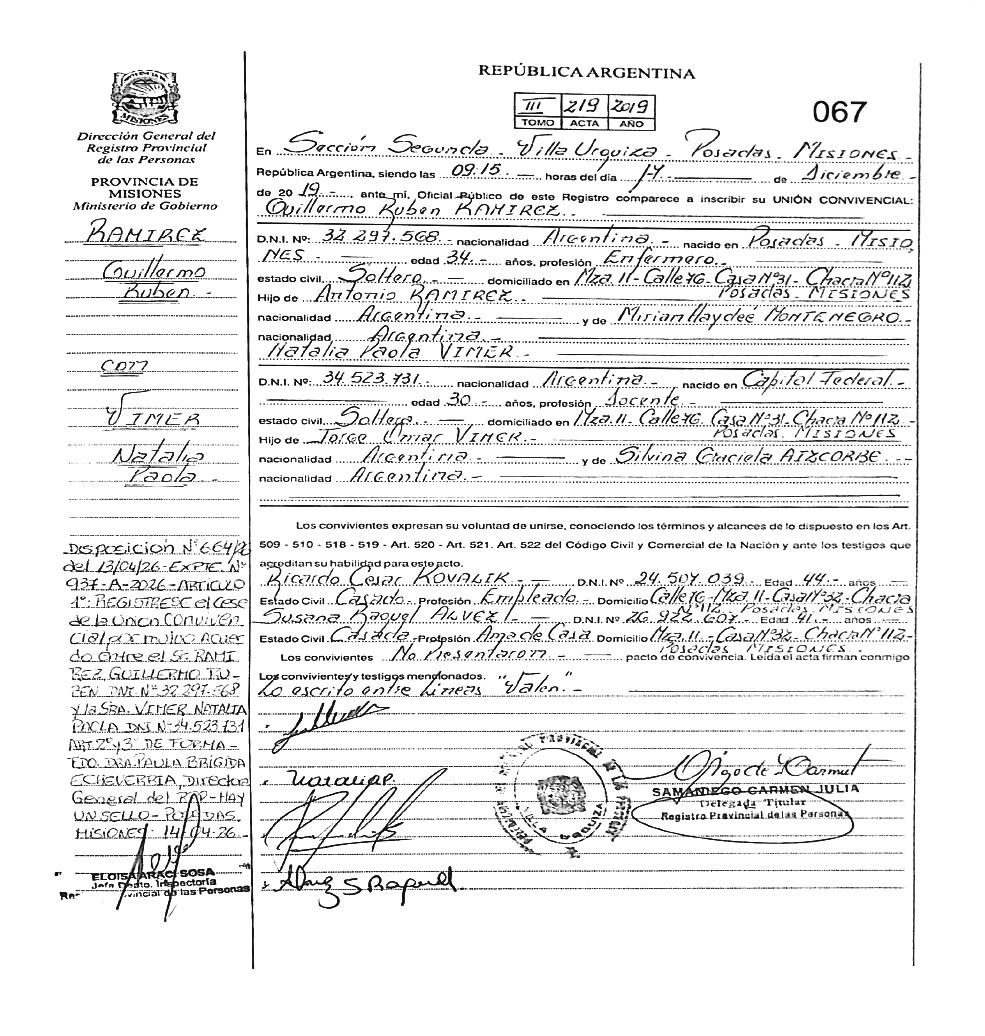 REPÚBLICA ARGENTINA
III 219 2019
TOMO ACTA AÑO
067
MISIONES
Dirección General del
Registro Provincial
de las Personas
PROVINCIA DE
MISIONES
Ministerio de Gobierno
RAMIREZ
Guillermo
Ruben.-
con
VIMER
Natalia
Paola.-
Disposición N° 664/26
del 13/04/26-EXPTE. N°
937-A-2026-ARTICULO
1°: REGISTRESE el cese
de la Union CONVIVEN
CIAL por mutuo Acuer
do Entre el Sr. RAMI
REZ, GUILLERMO RU-
BEN DNI. N° 32.297.568
y la SRA. VIMER NATALIA
PAOLA DNI. N° 34.523.731
ART. 2° y 3° DE FORMA-
FDO. DRA. PAULA BRIGIDA
ECHEVERRIA, Directora
General del RPP-HAY
UN SELLO- POSADAS.
MISIONES- 14/04-26.-
ELOISA ARACI SOSA
Jefa Dpto. Inspectoría
Provincial de las Personas
En Sección Segunda - Villa Urquiza - Posadas - MISIONES -
República Argentina, siendo las 09.15.- horas del día 17 de Diciembre -
de 20 19.- ante mí, Oficial Público de este Registro comparece a inscribir su UNIÓN CONVIVENCIAL:
Guillermo Ruben RAMIREZ.-
D.N.I. Nº 32.297.568.- nacionalidad Argentina.- nacido en Posadas - MISIO
NES - edad 34.- años, profesión Enfermero.-
estado civil Soltero.- domiciliado en Mza. 11 - Calle 76 - Casa Nº 31 - Chacra Nº 112
Posadas - MISIONES
Hijo de Antonio RAMIREZ.-
nacionalidad Argentina.- y de Mirian Haydeé MONTENEGRO.-
nacionalidad Argentina.-
Natalia Paola VIMER.-
D.N.I. Nº 34.523.731.- nacionalidad Argentina.- nacido en Capital Federal.-
edad 30.- años, profesión Docente.-
estado civil Soltera.- domiciliado en Mza. 11 - Calle 76 Casa Nº 31. Chacra Nº 112.-
Posadas MISIONES
Hijo de Jorge Omar VIMER.-
nacionalidad Argentina.- y de Silvina Graciela AIZCORBE.-
nacionalidad Argentina.-
Los convivientes expresan su voluntad de unirse, conociendo los términos y alcances de lo dispuesto en los Art.
509 - 510 - 518 - 519 - Art. 520 - Art. 521. Art. 522 del Código Civil y Comercial de la Nación y ante los testigos que
acreditan su habilidad para este acto.
Ricardo Cesar KOVALIK - D.N.I. Nº 24.507.039 - Edad 44.- años
Estado Civil Casado - Profesión Empleado.- Domicilio Calle 76 - Mza. 11 - Casa Nº 32 - Chacra
Nº 112 - Posadas MISIONES
Susana Raquel ALVEZ - D.N.I. Nº 26.922.607.- Edad 41.- años
Estado Civil Casada - Profesión Ama de Casa Domicilio Mza. 11 - Casa Nº 32 Chacra Nº 112-
Posadas MISIONES -
Los convivientes No Presentaron - pacto de convivencia. Leída el acta firman conmigo
Los convivientes y testigos mencionados. "Valen".-
Lo escrito entre Lineas
NataliaP.
SAMANIEGO CARMEN JULIA
Delegada Titular
Registro Provincial de las Personas
VILLA URQUIZA
Alvez S Raquel